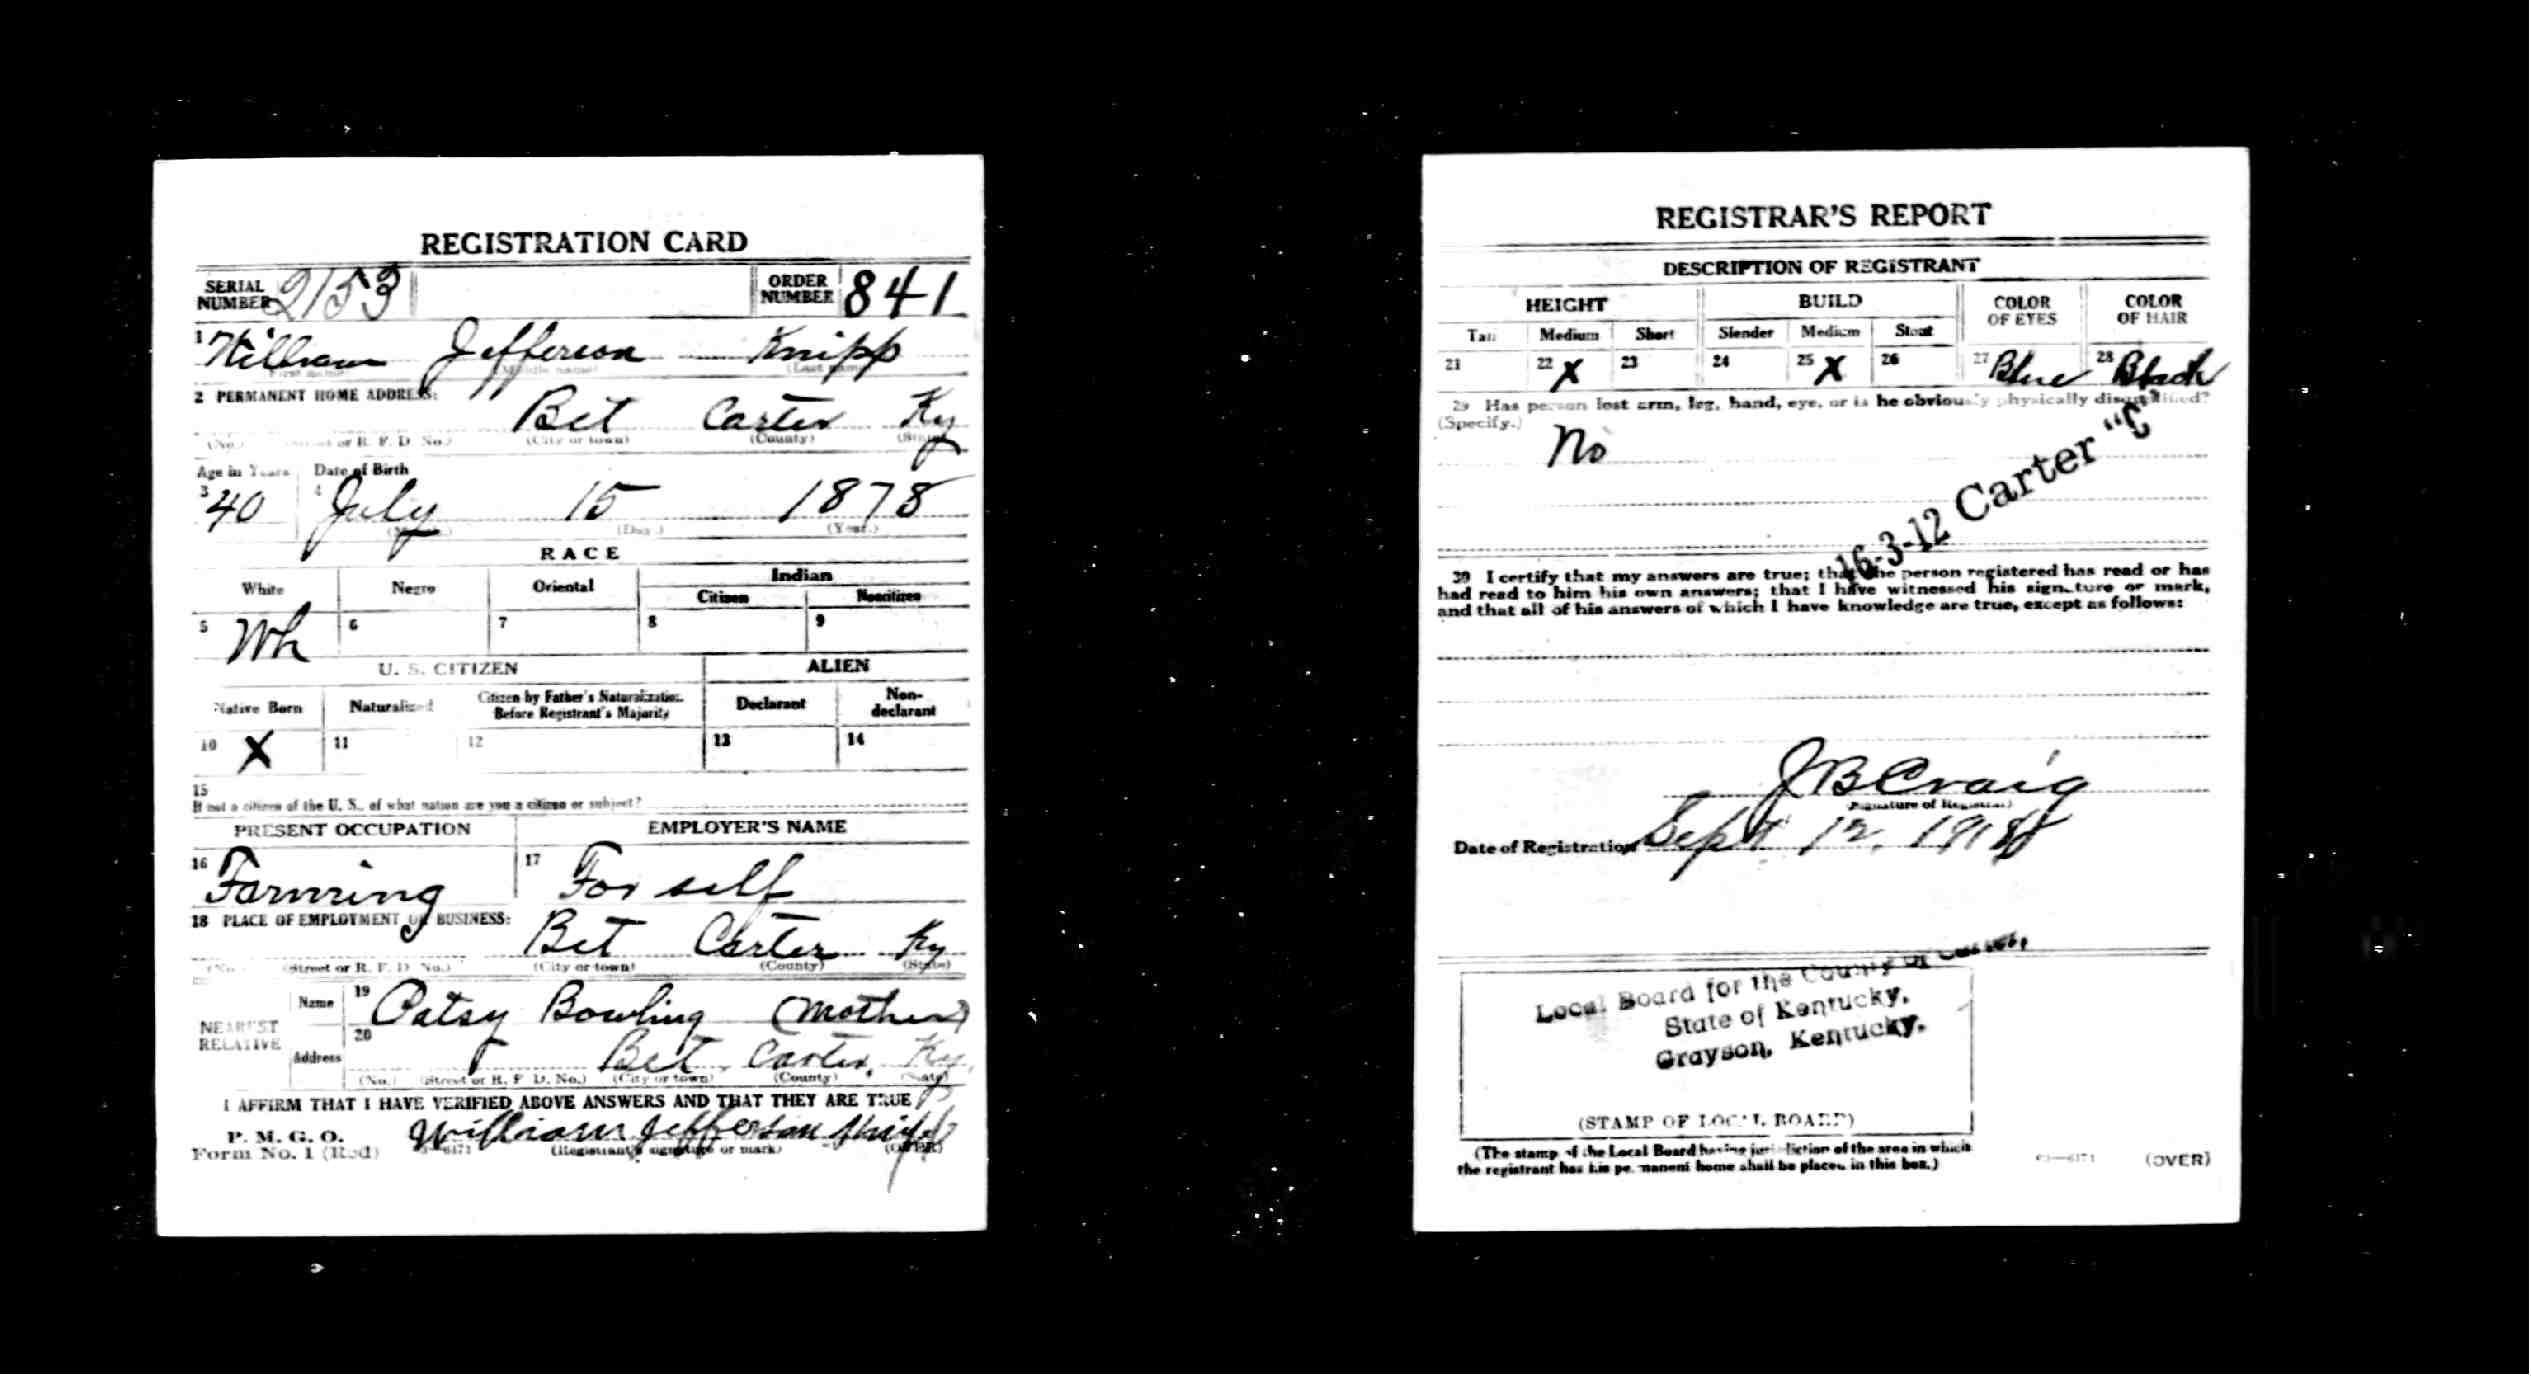 REGISTRATION CARD
SERIAL NUMBER 2153 ORDER NUMBER 841
1 William Jefferson Knipp
(First name) (Middle name) (Last name)
2 PERMANENT HOME ADDRESS:
Bet Carter Ky
(No.) (Street or R. F. D. No.) (City or town) (County) (State)
Age in Years Date of Birth
3 40 4 July 15 1878
(Month.) (Day.) (Year.)
RACE
White Negro Oriental Indian
Citizen Noncitizen
5 Wh 6 7 8 9
U. S. CITIZEN ALIEN
Native Born Naturalized Citizen by Father's Naturalization Before Registrant's Majority Declarant Non-declarant
10 X 11 12 13 14
15
If not a citizen of the U. S., of what nation are you a citizen or subject?
PRESENT OCCUPATION EMPLOYER'S NAME
16 Farming 17 For self
18 PLACE OF EMPLOYMENT OR BUSINESS:
Bet Carter Ky
(No.) (Street or R. F. D. No.) (City or town) (County) (State)
NEAREST RELATIVE
Name 19 Patsy Bowling (Mother)
Address 20 Bet Carter, Ky.
(No.) (Street or R. F. D. No.) (City or town) (County) (State)
I AFFIRM THAT I HAVE VERIFIED ABOVE ANSWERS AND THAT THEY ARE TRUE
P. M. G. O.
Form No. 1 (Red) William Jefferson Knipp
(Registrant's signature or mark) (OVER)
REGISTRAR'S REPORT
DESCRIPTION OF REGISTRANT
HEIGHT BUILD COLOR OF EYES COLOR OF HAIR
Tall Medium Short Slender Medium Stout
21 22 X 23 24 25 X 26 27 Blue 28 Black
29 Has person lost arm, leg, hand, eye, or is he obviously physically disqualified?
(Specify.)
No
16-3-12 Carter "C"
30 I certify that my answers are true; that the person registered has read or has
had read to him his own answers; that I have witnessed his signature or mark,
and that all of his answers of which I have knowledge are true, except as follows:
J B Craig
(Signature of Registrar)
Date of Registration Sept 12, 1918
Local Board for the County of Carter,
State of Kentucky,
Grayson, Kentucky.
(STAMP OF LOCAL BOARD)
(The stamp of the Local Board having jurisdiction of the area in which
the registrant has his permanent home shall be placed in this box.)
03—6171 (OVER)